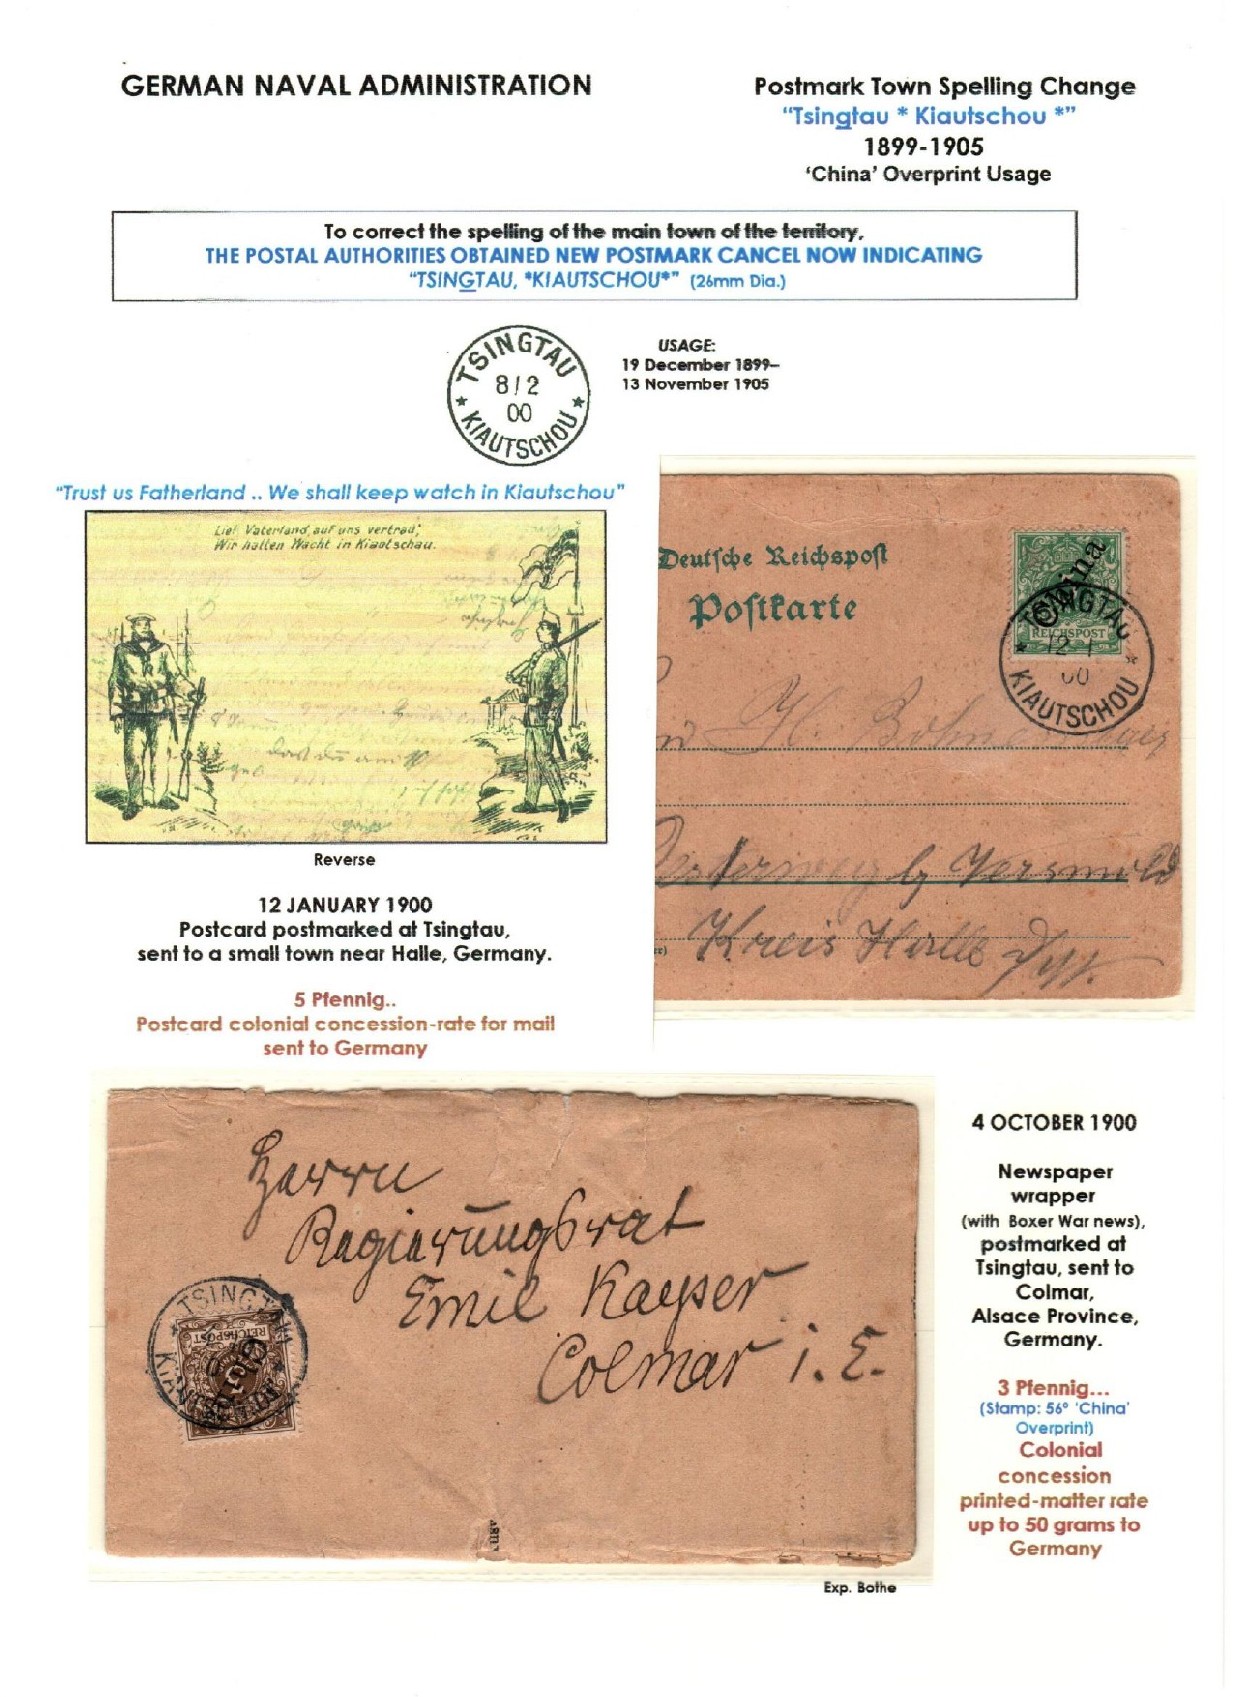 GERMAN NAVAL ADMINISTRATION
Postmark Town Spelling Change
"Tsingtau * Kiautschou *"
1899-1905
'China' Overprint Usage
To correct the spelling of the main town of the territory,
THE POSTAL AUTHORITIES OBTAINED NEW POSTMARK CANCEL NOW INDICATING
"TSINGTAU, *KIAUTSCHOU*" (26mm Dia.)
TSINGTAU
8/2
00
* KIAUTSCHOU *
USAGE:
19 December 1899–
13 November 1905
"Trust us Fatherland .. We shall keep watch in Kiautschou"
Lieb Vaterland, auf uns vertrau;
Wir halten Wacht in Kiautschau.
Reverse
12 JANUARY 1900
Postcard postmarked at Tsingtau,
sent to a small town near Halle, Germany.
5 Pfennig..
Postcard colonial concession-rate for mail
sent to Germany
Deutsche Reichspost
Postkarte
China
REICHSPOST
TSINGTAU
12 1
00
* KIAUTSCHOU *
H.
by Versmold
Kreis Halle
Herrn
Regierungsrat
Emil Kayser
Colmar i. E.
TSINGTAU
REICHSPOST
China
4 OCTOBER 1900
Newspaper
wrapper
(with Boxer War news),
postmarked at
Tsingtau, sent to
Colmar,
Alsace Province,
Germany.
3 Pfennig...
(Stamp: 56° 'China'
Overprint)
Colonial
concession
printed-matter rate
up to 50 grams to
Germany
Exp. Bothe